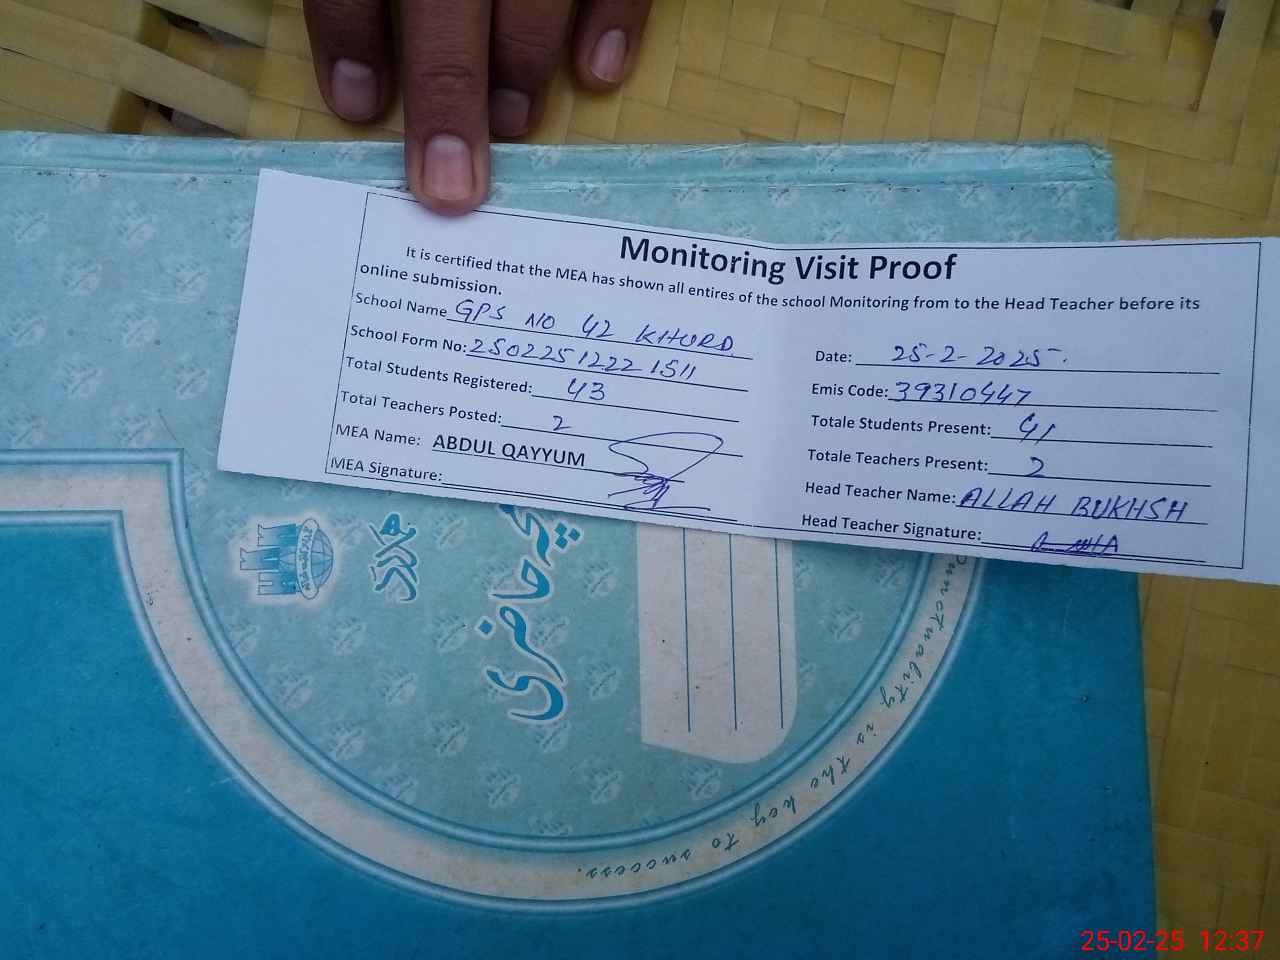 Monitoring Visit Proof
It is certified that the MEA has shown all entires of the school Monitoring from to the Head Teacher before its
online submission.
School Name GPS NO 42 KHURD
Date: 25-2-2025.
School Form No: 2502251222 1511
Emis Code: 39310447
Total Students Registered: 43
Totale Students Present: 41
Total Teachers Posted: 2
Totale Teachers Present: 2
MEA Name: ABDUL QAYYUM
Head Teacher Name: ALLAH BUKHSH
MEA Signature:
Head Teacher Signature:
ہمدرد
حاضری
Punctuality is the key to success.
25-02-25 12:37